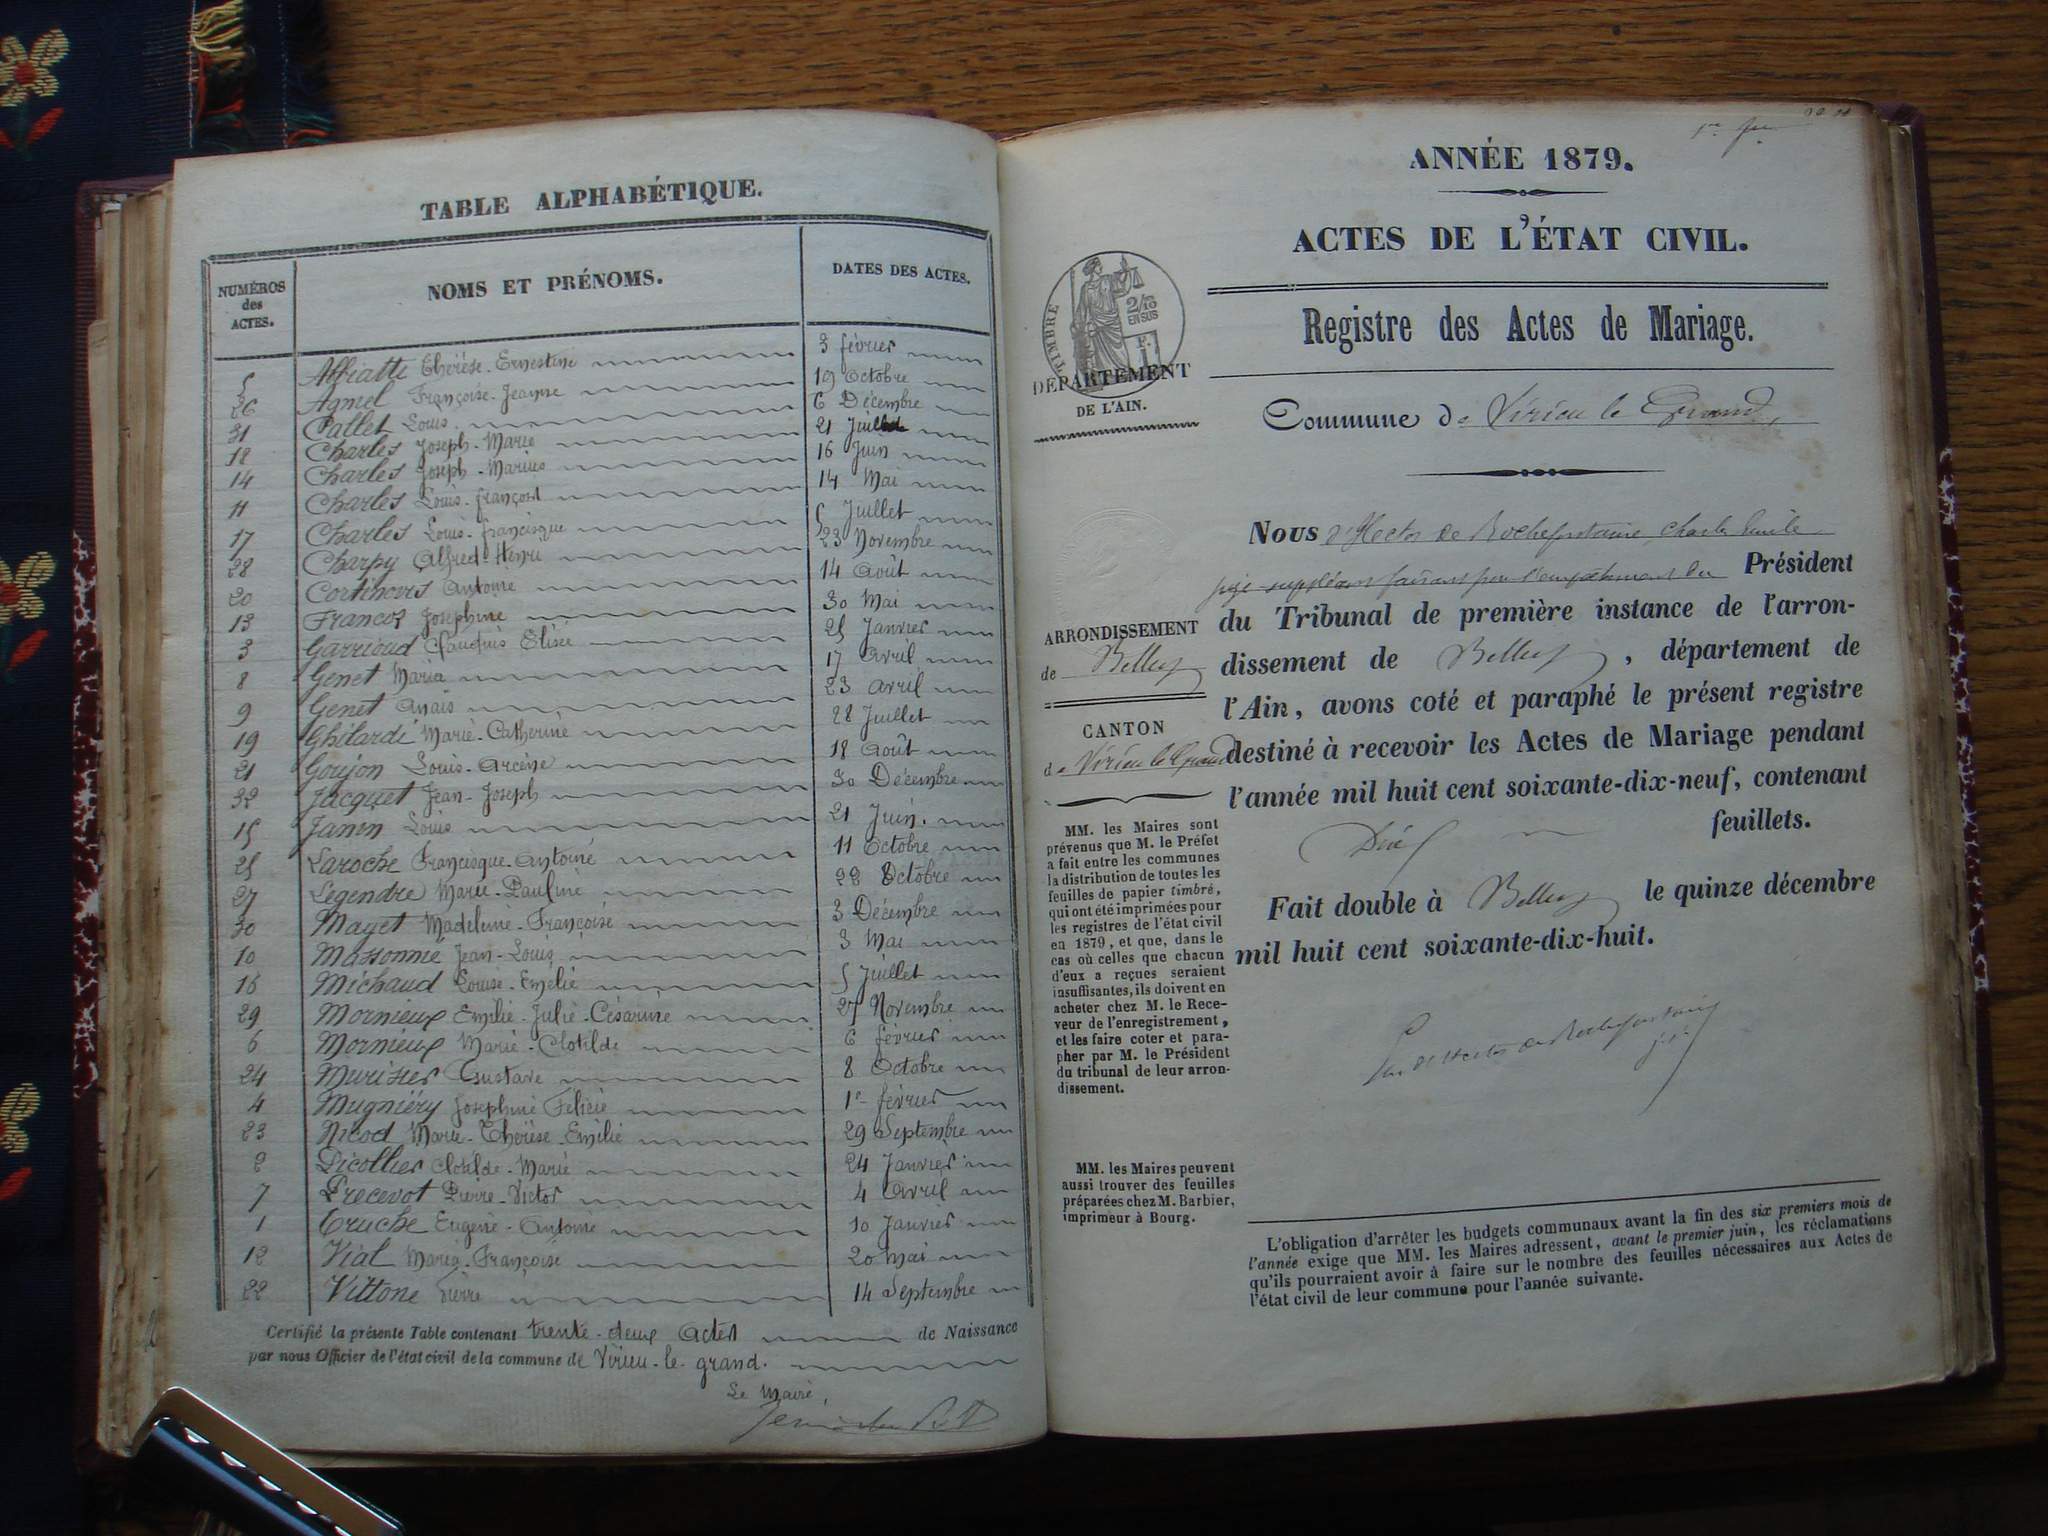 TABLE ALPHABÉTIQUE.
NUMÉROS des ACTES. NOMS ET PRÉNOMS. DATES DES ACTES.
5 Thérèse-Ernestine 3 février
26 Agniel Françoise-Jeanne 19 Octobre
31 Pallet Louis 6 Décembre
18 Charles Joseph-Marie 21 Juillet
14 Charles Joseph-Marius 16 Juin
11 Charles Louis-françois 14 Mai
17 Charles Louis-francisque 5 Juillet
28 Charpy Alfred-Henri 23 Novembre
20 Cortinovis Antoine 14 Août
13 Francoz Joséphine 30 Mai
3 Garrioud Elisée 25 Janvier
8 Genet Maria 17 Avril
9 Genet Anaïs 23 Avril
19 Ghilardi Marie-Catherine 28 Juillet
21 Goujon Louis-Arcène 18 Août
32 Jacquet Jean-Joseph 30 Décembre
15 Janin Louis 21 Juin.
25 Laroche Francisque-Antoine 11 Octobre
27 Legendre Marie-Pauline 22 Octobre
30 Mayet Madeleine-Françoise 3 Décembre
10 Massonnie Jean-Louis 3 Mai
16 Michaud Louise-Emélie 5 Juillet
29 Mornieux Emilie-Julie-Césarine 27 Novembre
6 Mornieux Marie-Clotilde 6 février
24 Murisier Gustave 8 Octobre
4 Mugniéry Joséphine Félicie 1er février
23 Nicod Marie-Thérèse-Emilie 29 Septembre
2 Picollier Clotilde-Marie 24 Janvier
7 Precevot Pierre-Victor 4 Avril
1 Truche Eugène-Antoine 10 Janvier
12 Vial Maria-Françoise 20 Mai
22 Vittone Pierre 14 Septembre
Certifié la présente Table contenant trente-deux Actes de Naissance
par nous Officier de l'état civil de la commune de Virieu-le-grand.
Le Maire,
ANNÉE 1879.
ACTES DE L'ÉTAT CIVIL.
Registre des Actes de Mariage.
Commune de Virieu le Grand
TIMBRE
2/10
EN SUS
DÉPARTEMENT
DE L'AIN.
ARRONDISSEMENT
de Belley
CANTON
de Virieu le Grand
MM. les Maires sont
prévenus que M. le Préfet
a fait entre les communes
la distribution de toutes les
feuilles de papier timbré,
qui ont été imprimées pour
les registres de l'état civil
en 1879, et que, dans le
cas où celles que chacun
d'eux a reçues seraient
insuffisantes, ils doivent en
acheter chez M. le Rece-
veur de l'enregistrement,
et les faire coter et para-
pher par M. le Président
du tribunal de leur arron-
dissement.
MM. les Maires peuvent
aussi trouver des feuilles
préparées chez M. Barbier,
imprimeur à Bourg.
Nous d'Hector de Rochefontaine, Charles Emile
juge suppléant faisant pour l'empêchement du Président
du Tribunal de première instance de l'arron-
dissement de Belley, département de
l'Ain, avons coté et paraphé le présent registre
destiné à recevoir les Actes de Mariage pendant
l'année mil huit cent soixante-dix-neuf, contenant
Dix feuillets.
Fait double à Belley le quinze décembre
mil huit cent soixante-dix-huit.
d'Hector de Rochefontaine
L'obligation d'arrêter les budgets communaux avant la fin des six premiers mois de
l'année exige que MM. les Maires adressent, avant le premier juin, les réclamations
qu'ils pourraient avoir à faire sur le nombre des feuilles nécessaires aux Actes de
l'état civil de leur commune pour l'année suivante.